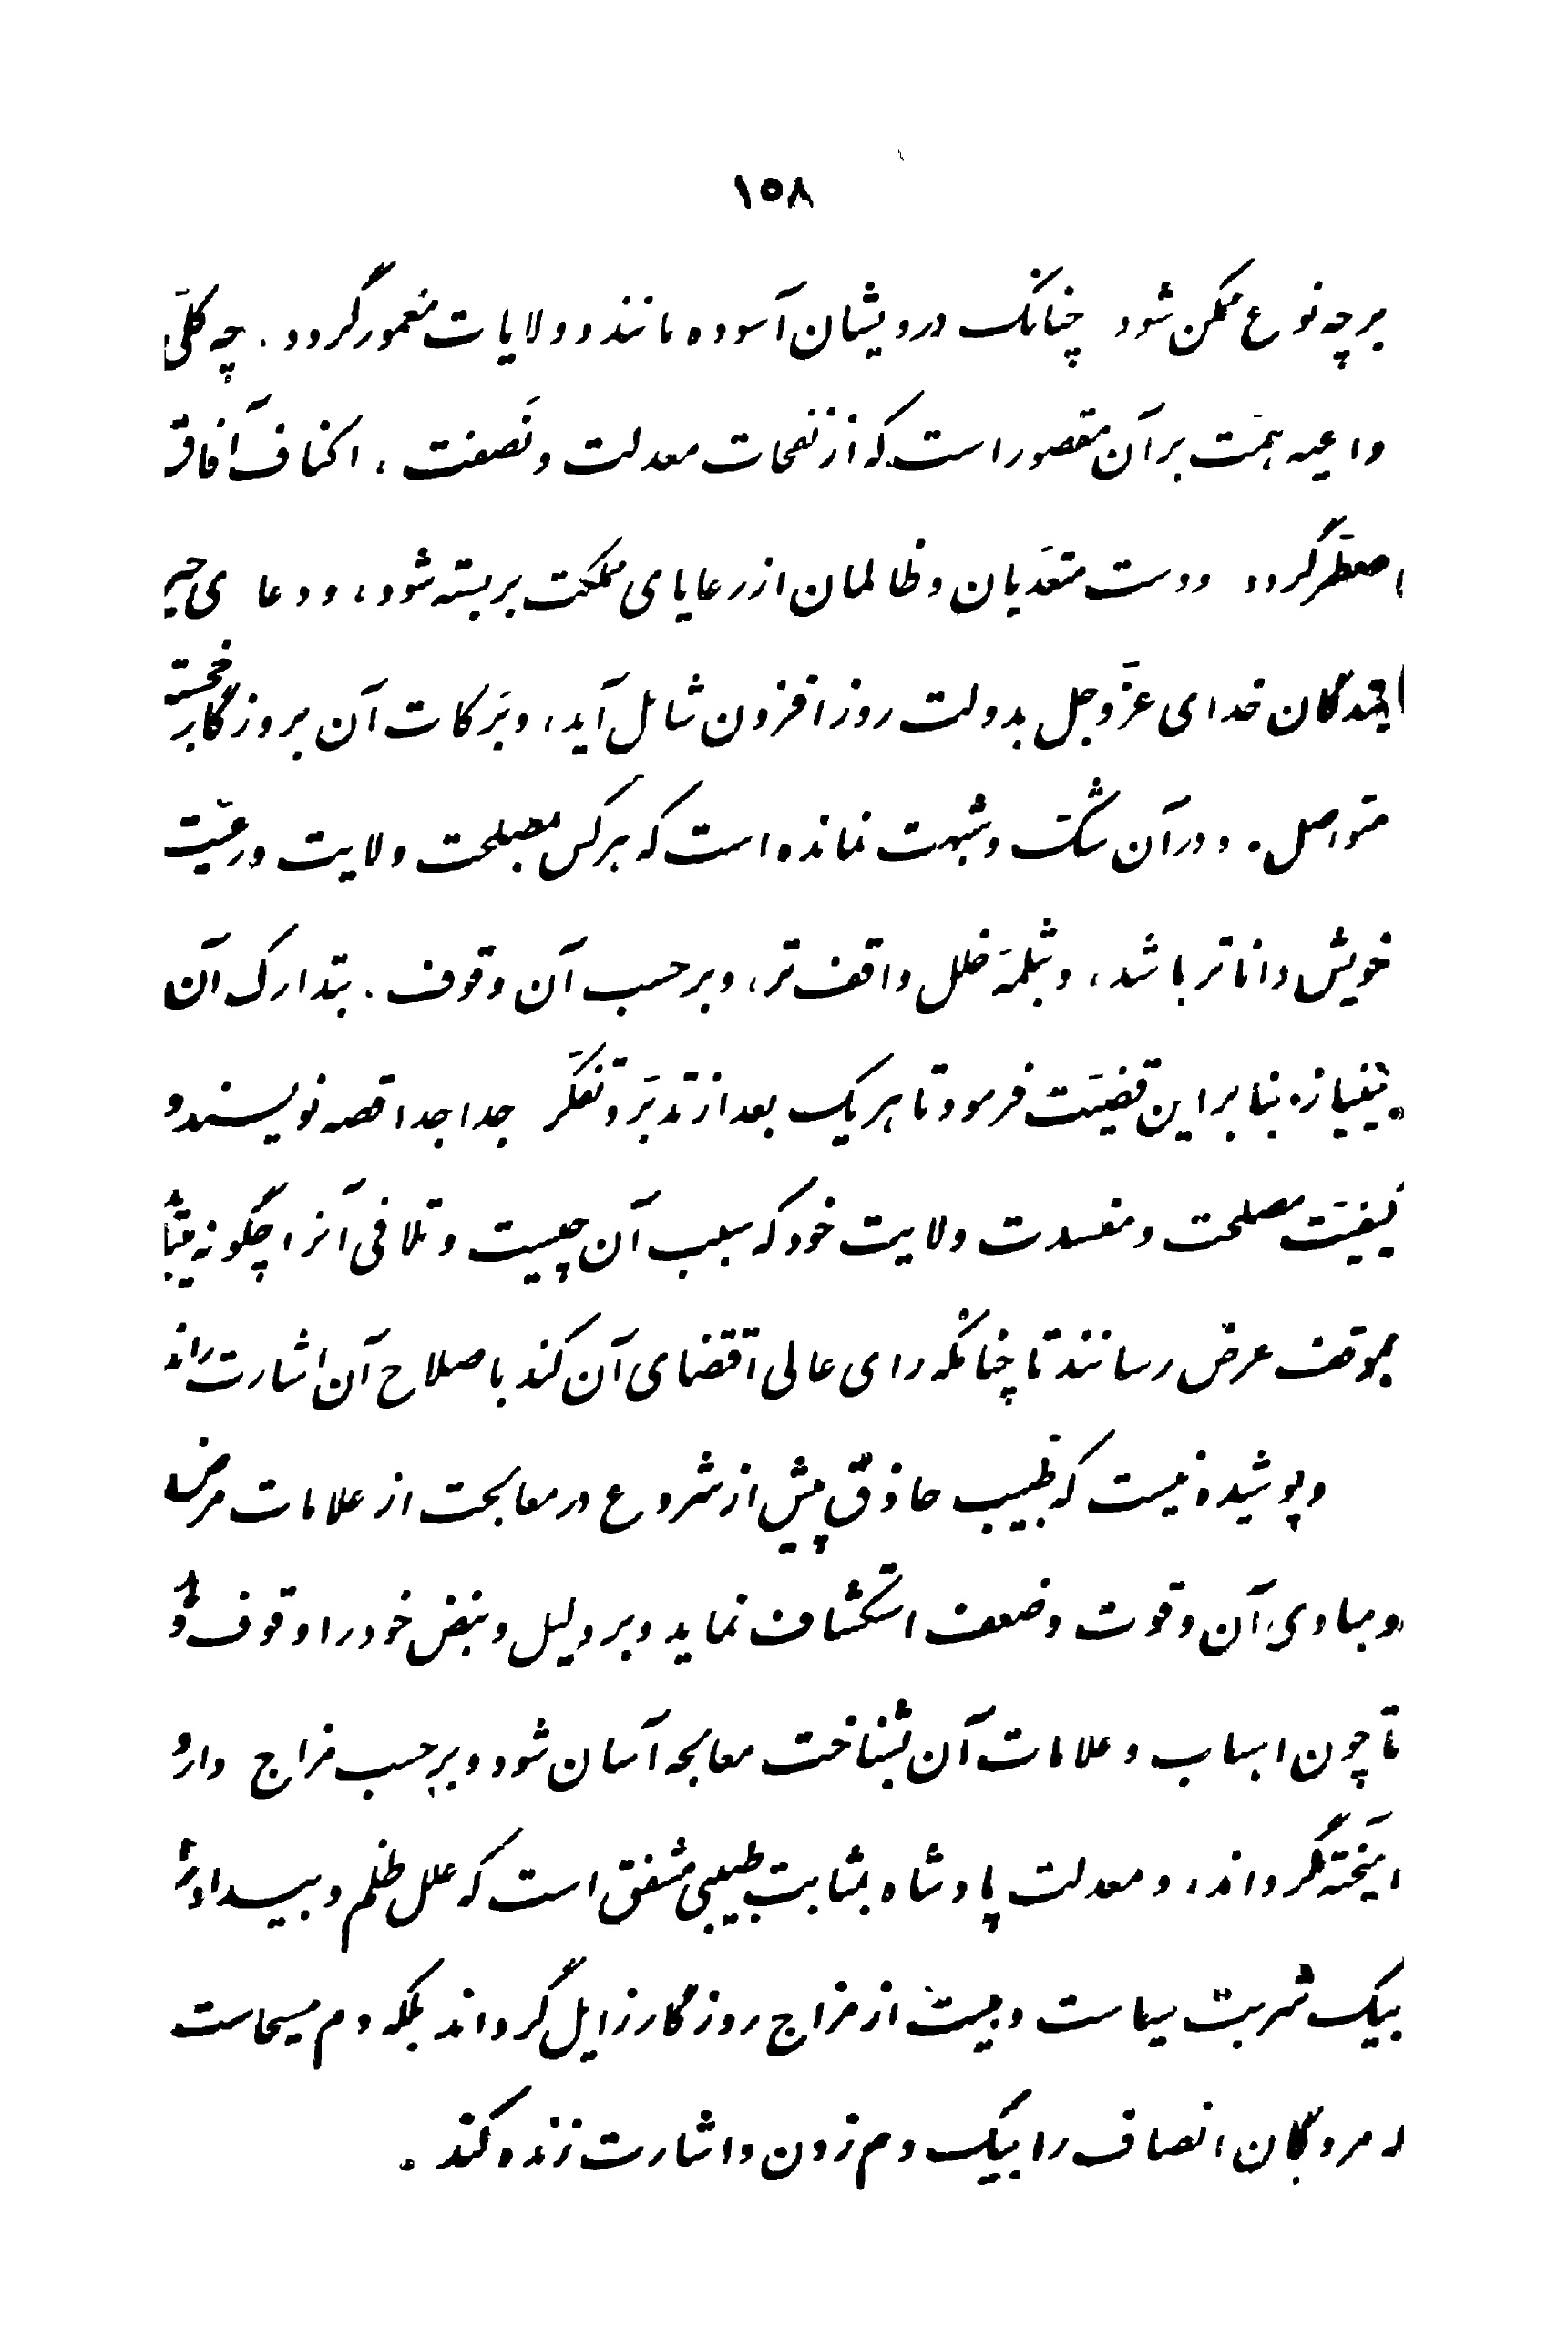 ۱۵۸
برچه نوع ممکن شود چنانک درویشان آسوده مانند و ولایات معمور گردد . چه کلّی
داعیه همّت بر آن مقصور است که از نفحات معدلت و نَصفت ، اکناف آفاق
معطّر گردد و دست متعدّیان و ظالمان از رعایای مملکت بر بسته شود ، و دعا ی خیر
بندگان خدای عزّوجل بدولت روز افزون شامل آید ، و بَرکات آن بروزگار خجسته
متواصل . و در آن شکّ و شبهت نمانده است که هر کس بمصلحت ولایت و رعیّت
خویش داناتر باشد ، و بثلمهٔ خلل واقف تر ، و بر حسب آن وقوف . بتدارک آن
بنابراین قضیّت فرمود تا هر یک بعد از تدبّر و تفکّر جدا جدا قصه نویسند و
کیفیّت مصلحت و مفسدت ولایت خود که سبب آن چیست و تلافی آنرا چگونه
بموقف عرض رسانند تا چنانکه رای عالی اقتضای آن کند باصلاح آن اشارت راند
و پوشیده نیست که طبیب حاذق پیش از شروع در معالجت از علامات مرض
و مبادی آن و قوت و ضعف استکشاف نماید و بر دلیل و نبض خود را وقوف
تا چون اسباب و علامات آن بشناخت معالجه آسان شود و بر حسب مزاج دارو
آمیخته گرداند ، و معدلت پادشاه بمثابت طبیبی مشفق است که علل ظلم و بیداد را
بیک شربت سیاست و هیبت از مزاج روزگار زایل گرداند بلکه دم مسیحاست
که مردگان انصاف را بیک دم زدن و اشارت زنده کند .